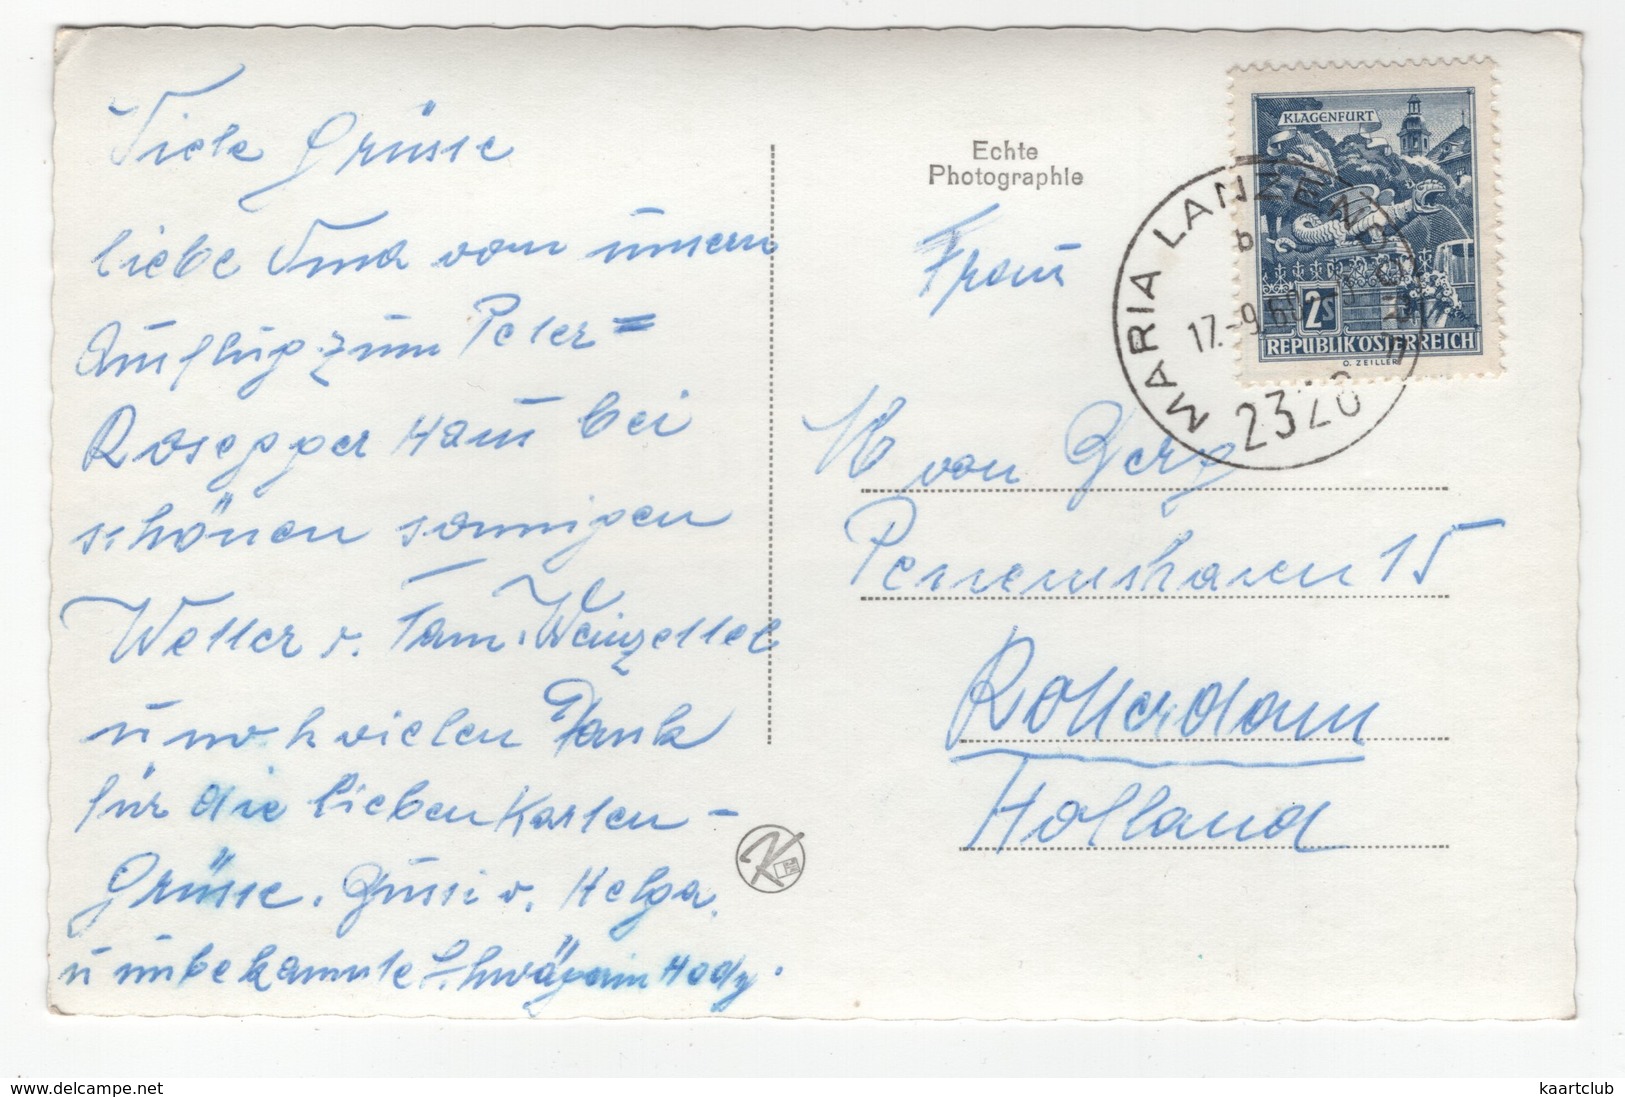 Viele Grüsse
liebe und von unsern
Ausflug zum Peter=
Rosegger Haus bei
schönen sonnigen
Wetter v. Fam. Weinzettel
u noch vielen Dank
für die lieben Karten -
Grüsse. Gussi v. Helga.
u unbekannte Schwägerin Hedy.
Echte
Photographie
KLAGENFURT
2S
REPUBLIK ÖSTERREICH
O. ZEILLER
MARIA LANZENDORF
b
17.-9.69
2326
Frau
von
15
Rotterdam
Holland
K
www.delcampe.net
kaartclub